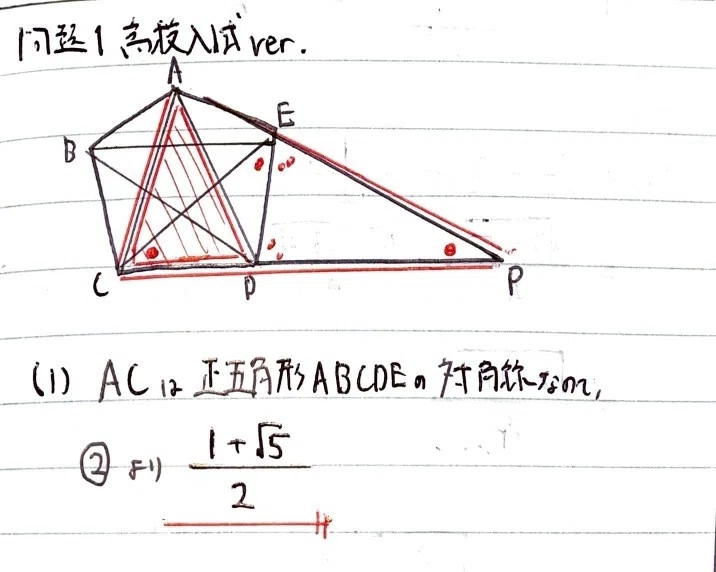 問題1 高校入試 ver.
A
E
B
C
D
P
(1) ACは正五角形ABCDEの対角線なので,
②より 1+√5
2